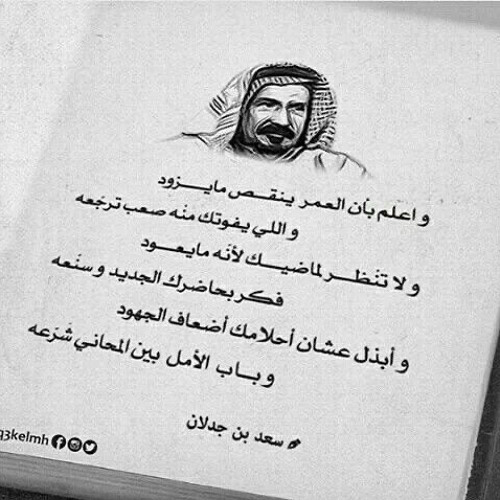 و اعلم بأن العمر ينقـــص مايـــزود
و اللي يفوتك منه صعب ترجعه
و لا تنظـــر لماضيـــك لأنه مايعـــود
فكر بحاضرك الجديد و سنعه
و أبذل عشان أحلامك أضعاف الجهود
و بـــاب الأمل بين المحاني شرعه
سعد بن جدلان
q3kelmh